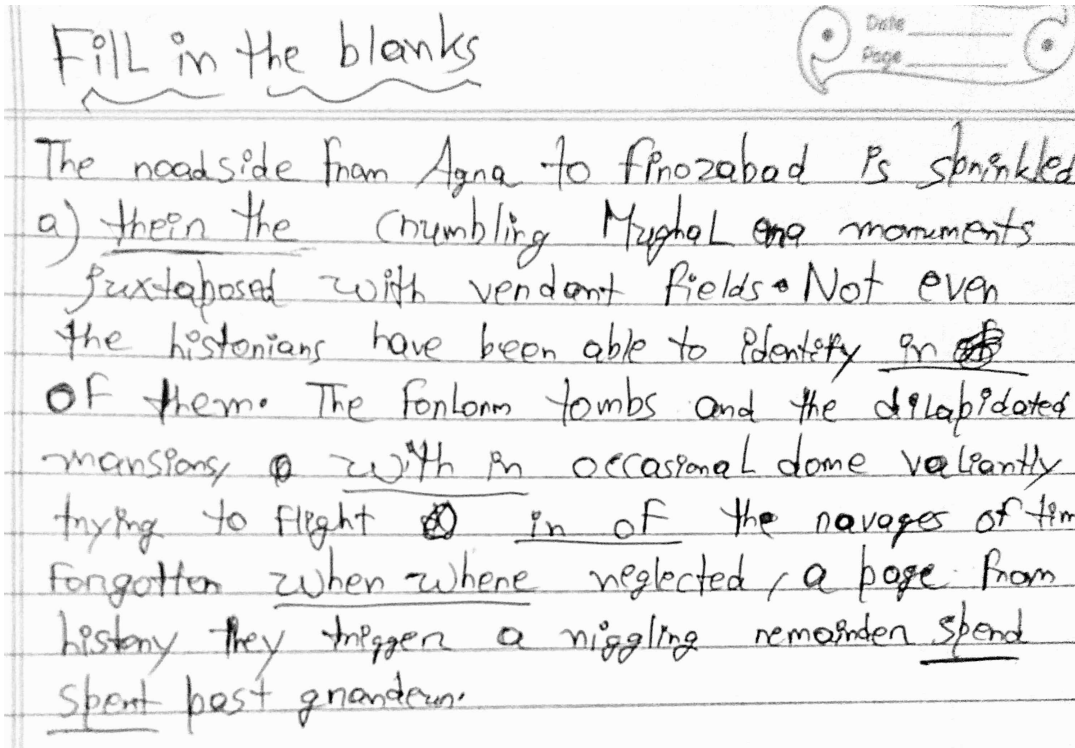 Date
Page
Fill in the blanks
The roadside from Agra to firozabad is sprinkled
a) their the crumbling Mughal era monuments
juxtaposed with verdant fields. Not even
the historians have been able to identify in
of them. The forlorn tombs and the dilapidated
mansions, with in occasional dome valiantly
trying to flight in of the ravages of tim
forgotten when where neglected, a page from
history they trigger a niggling remainder spend
spent past grandeur.